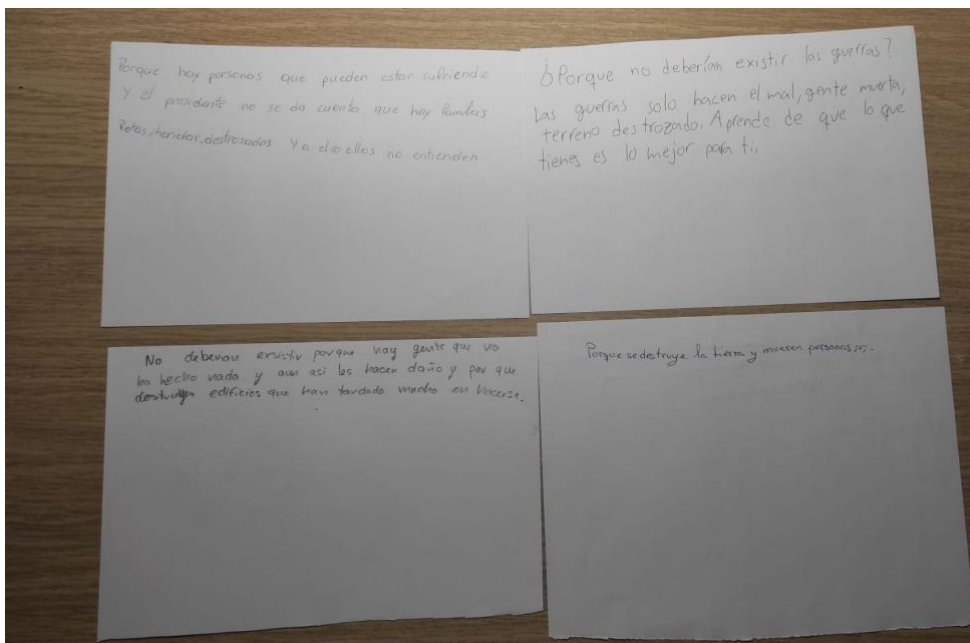 Porque hay personas que pueden estar sufriendo
Y el presidente no se da cuenta que hay familias
Rotas, heridas, destrosadas Y a ellos no entienden
¿Porque no deberían existir las guerras?
Las guerras solo hacen el mal, gente muerta,
terreno destrozado. Aprende de que lo que
tienes es lo mejor para ti.
No deberian exsistir porque hay gente que no
ha hecho nada y aun asi les hacen daño y por que
destruyen edificios que han tardado mucho en hacerse.
Porque se destruye la tierra y mueren personas